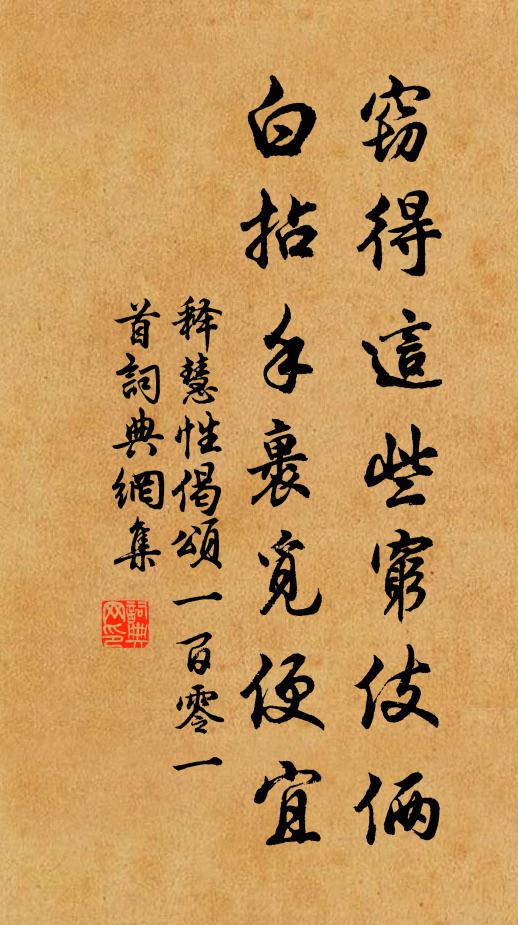 窃得這些窮伎倆
白拈手裏覓便宜
释慧性偈頌一百零一
首詞典網集
詞典网印